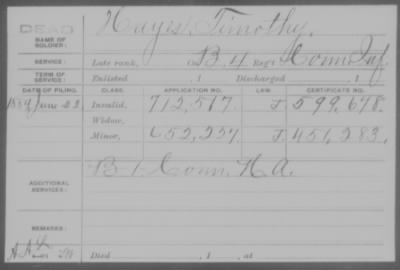 DEAD
NAME OF SOLDIER: Hayes, Timothy.
SERVICE: Late rank, Co. B, 4 Reg't Conn. Inf.
TERM OF SERVICE: Enlisted , 1 Discharged , 1
DATE OF FILING. CLASS. APPLICATION NO. LAW. CERTIFICATE NO.
1889 June 22 Invalid, 712,517. J. 599,678.
Widow,
Minor, 652,237. J. 451,283.
ADDITIONAL SERVICES: B 1 Conn. H.A.
REMARKS:
Died , 1 , at